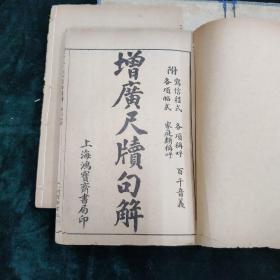 附 寫信程式 各項稱呼 百千音義
各項帖式 家庭類稱呼
增廣尺牘句解
上海鴻寶齋書局印